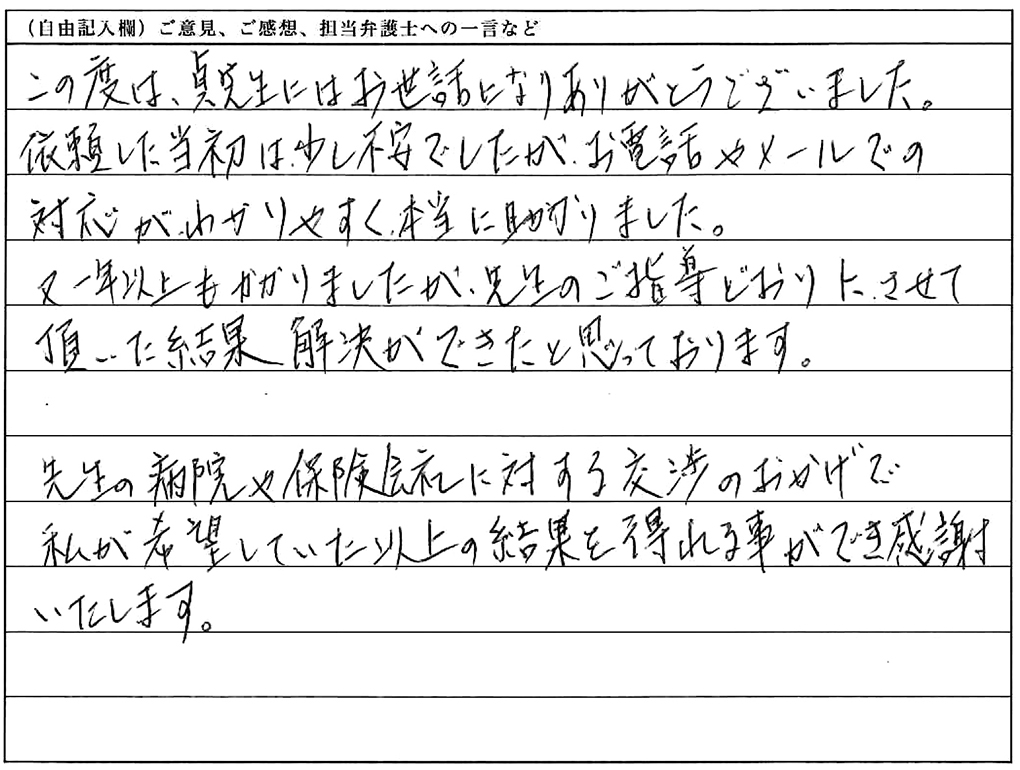 （自由記入欄）ご意見、ご感想、担当弁護士への一言など
この度は、真先生にはお世話になりありがとうございました。
依頼した当初は少し不安でしたが、お電話やメールでの
対応がわかりやすく本当に助かりました。
又一年以上もかかりましたが、先生のご指導どおりにさせて
頂いた結果解決ができたと思っております。
先生の病院や保険会社に対する交渉のおかげで
私が希望していた以上の結果を得れる事ができ感謝
いたします。